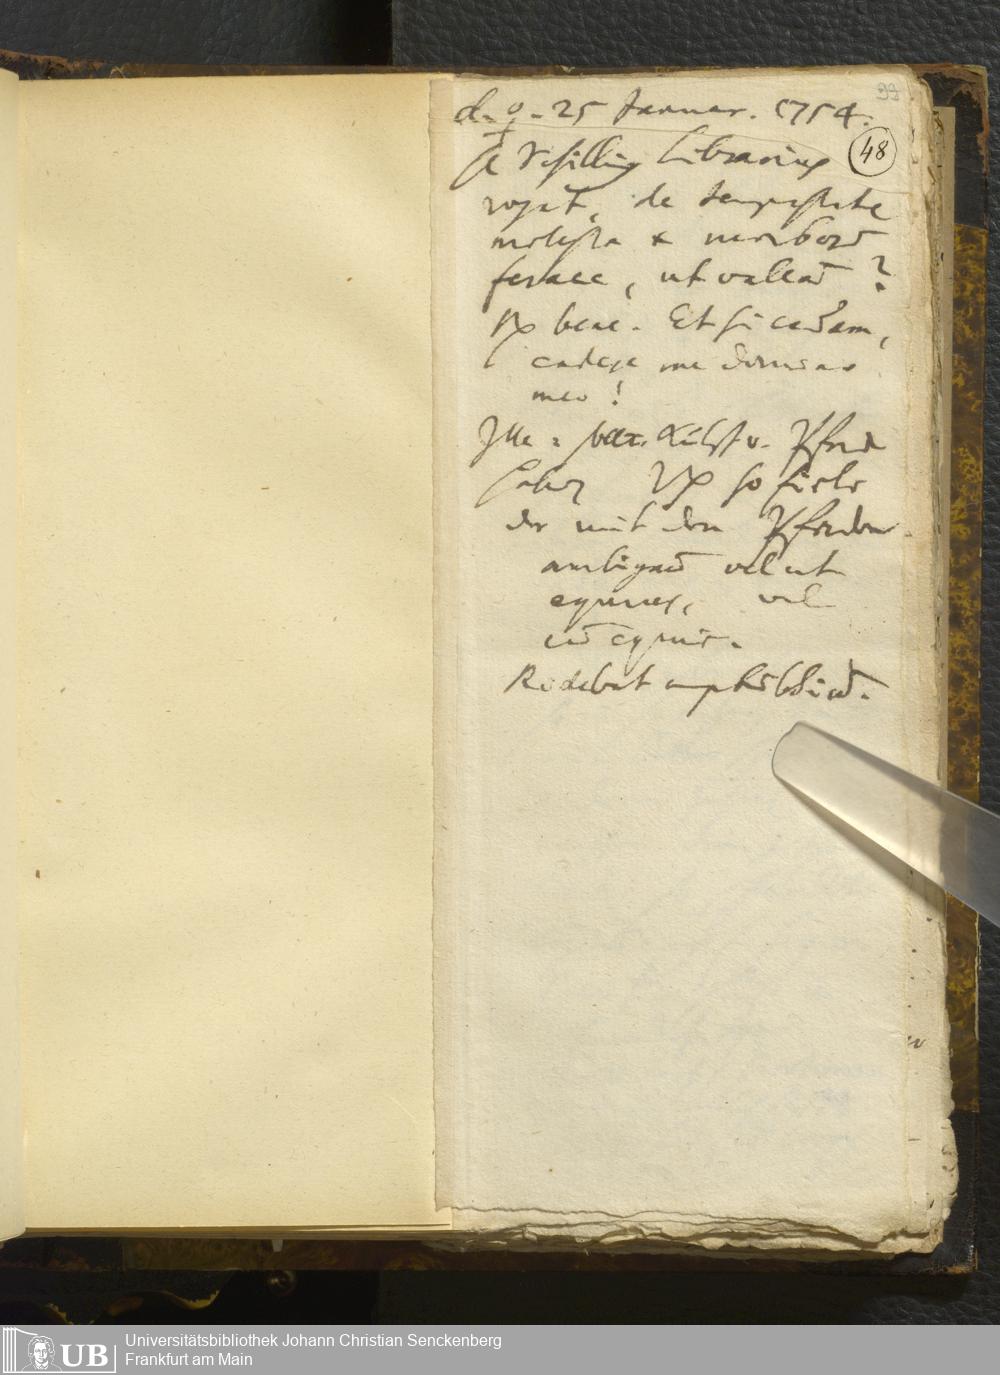 99
d. ♀. 25 Januar. 1754.
48
Schilling Librarius
rogat, de tempestate
molesta & morborū
ferace, ut valeā?
bene. Et si cadam,
cadere me domino
meo!
Ille: Küh u. Pferde
so fiele
der mit den Pferden.
ambiguū vel ut
equus, vel
cū equis.
Ridebat
Universitätsbibliothek Johann Christian Senckenberg
Frankfurt am Main
UB